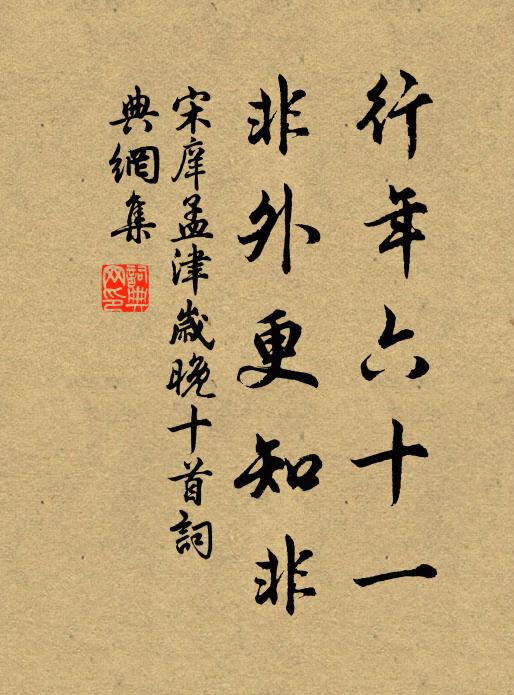 行年六十一
非外更知非
宋庠孟津歲晚十首詞
典網集
詞典網印